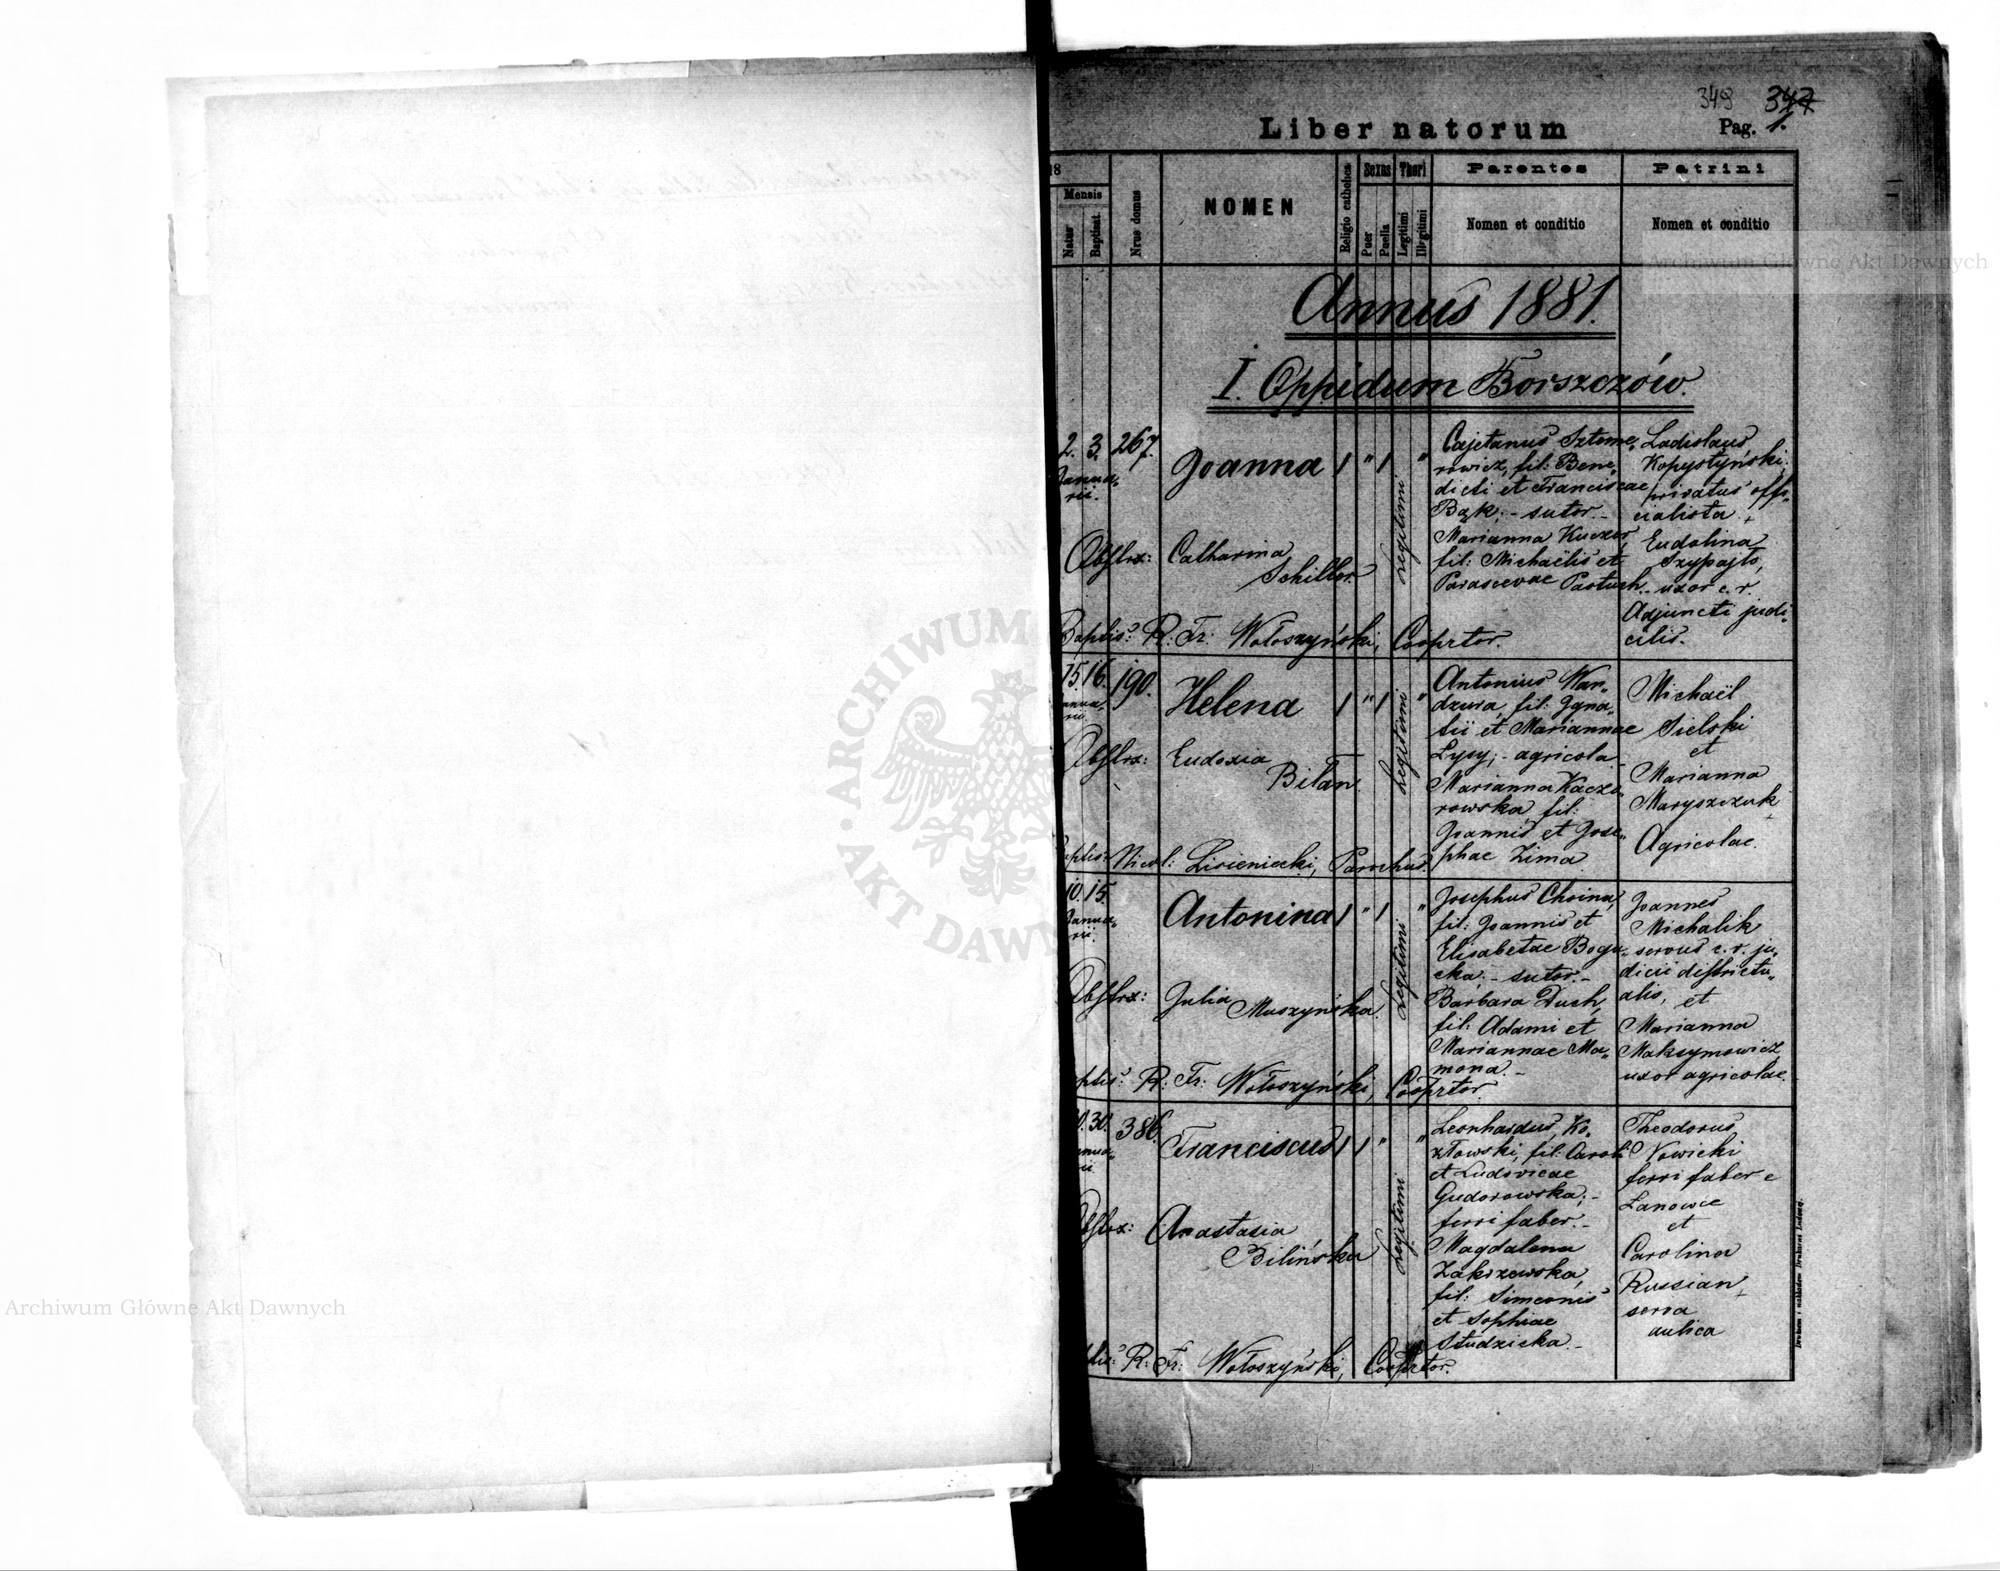 349 347
Liber natorum
Pag. 1.
18
Mensis
Natus
Baptisat.
Nrus domus
NOMEN
Religio catholica
Sexus
Puer
Puella
Thori
Legitimi
Illegitimi
Parentes
Nomen et conditio
Patrini
Nomen et conditio
Archiwum Główne Akt Dawnych
Annus 1881.
I. Oppidum Borszczów.
2. 3. 267.
Januarii.
Joanna 1 " 1 "
Legitimi
Cajetanus Sztome-
rowicz, fil: Bene-
dicti et Franciscae
Bąk; - sutor. -
Marianna Kuczer,
fil: Michaëlis et
Parascevae Pastuch. -
Ladislaus
Kopystyński,
privatus offi-
cialista +
Eudolina
Szypajło,
uxor c. r.
Adjuncti judi-
cilis.
Obstrx: Catharina
Schiller.
Baptis: R: Fr: Wołoszyński, Cooprtor.
15. 16. 190.
Januarii
Helena 1 " 1 "
Legitimi
Antonius Wan-
dzura, fil: Igna-
tii et Mariannae
Lysy; - agricola -
Marianna Kaczo-
rowska, fil:
Joannis et Jose-
phae Zima
Michaël
Sielski
et
Marianna
Maryszczuk
Agricolae.
Obstrx: Eudoxia
Bilan.
Baptis: Nicol: Lisieniecki, Parochus.
10. 15.
Januarii.
Antonina 1 " 1 "
Legitimi
Josephus Choina,
fil: Joannis et
Elisabetae Bogu-
cka; - sutor. -
Barbara Duch,
fil: Adami et
Mariannae Ma-
mona. -
Joannes
Michalik
servus c. r. ju-
dicii districtu-
alis, et
Marianna
Maksymowicz
uxor agricolae.
Obstrx: Julia Muszyńska.
Baptis: R: Fr: Wołoszyński, Cooprtor.
30. 386.
Franciscus 1 1 " "
Legitimi
Leonhardus Ko-
złowski, fil: Caroli
et Ludovicae
Gudorowska; -
ferri faber. -
Magdalena
Zakrzewska,
fil: Simeonis
et Sophiae
Studzicka. -
Theodorus
Nowicki
ferri faber e
Łanowce
et
Carolina
Russian
serva
aulica
Obstrx: Anastasia
Bilińska
Baptis: R: Fr: Wołoszyński, Cooprtor.
ARCHIWUM
AKT DAWN
Archiwum Główne Akt Dawnych